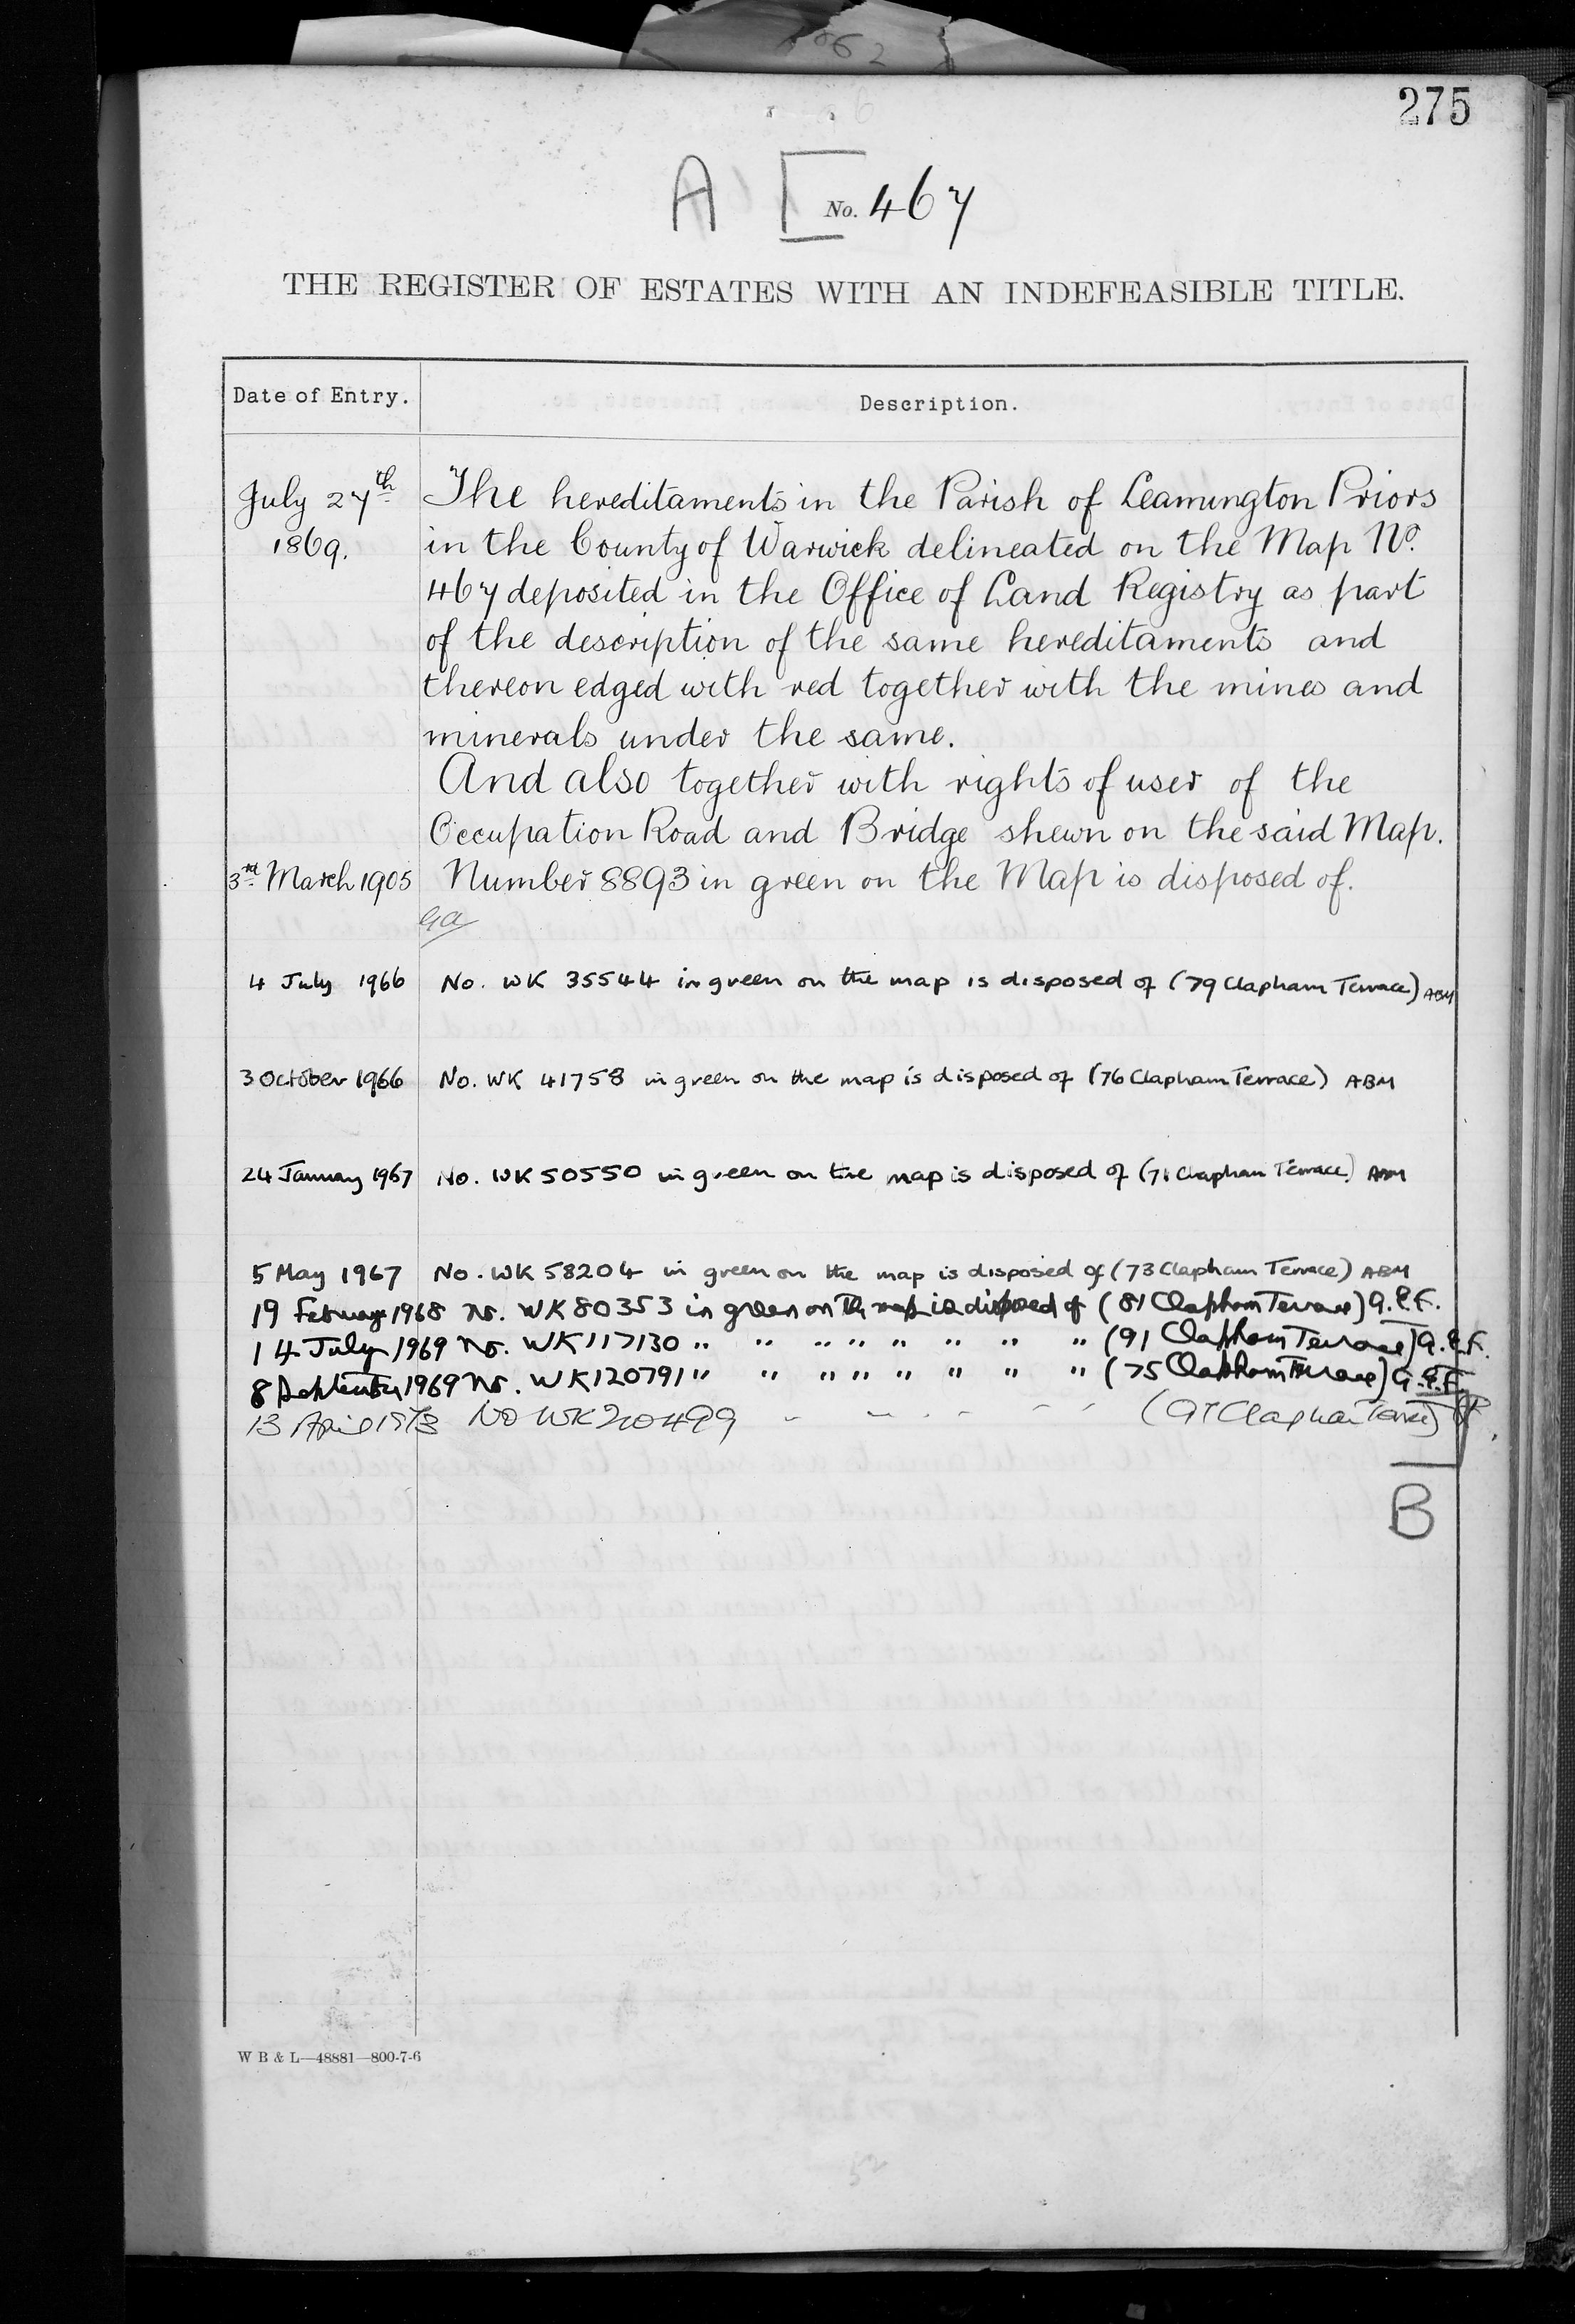 275
A [ No. 467
THE REGISTER OF ESTATES WITH AN INDEFEASIBLE TITLE.
Date of Entry. Description.
July 27th The hereditaments in the Parish of Leamington Priors
1869. in the County of Warwick delineated on the Map No.
467 deposited in the Office of Land Registry as part
of the description of the same hereditaments and
thereon edged with red together with the mines and
minerals under the same.
And also together with rights of user of the
Occupation Road and Bridge shewn on the said Map.
3rd March 1905 Number 8893 in green on the Map is disposed of.
4 July 1966 No. WK 35544 in green on the map is disposed of (79 Clapham Terrace) ABM
3 October 1966 No. WK 41758 in green on the map is disposed of (76 Clapham Terrace) ABM
24 January 1967 No. WK 50550 in green on the map is disposed of (71 Clapham Terrace) ABM
5 May 1967 No. WK 58204 in green on the map is disposed of (73 Clapham Terrace) ABM
19 February 1968 No. WK 80353 in green on the map is disposed of (81 Clapham Terrace) G.E.F.
14 July 1969 No. WK 117130 " " " " " " " " (91 Clapham Terrace) G.E.F.
8 September 1969 No. WK 120791 " " " " " " " " (75 Clapham Terrace) G.E.F.
13 April 1973 No WK 210499 - - - - - - (97 Clapham Terrace)
B
W B & L—48881—800-7-6